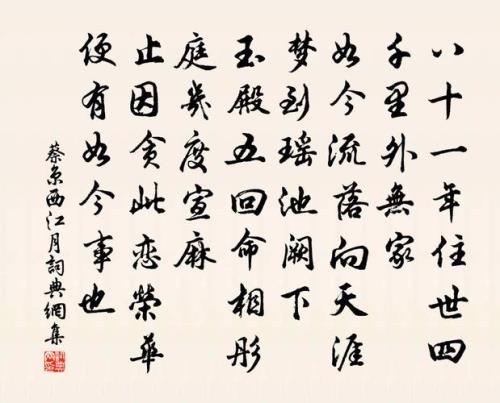 八十一年住世四
千里外無家
如今流落向天涯
梦到瑶池阙下
玉殿五回命相彤
庭幾度宣麻
止因貪此恋榮華
便有如今事也
蔡京西江月詞典網集